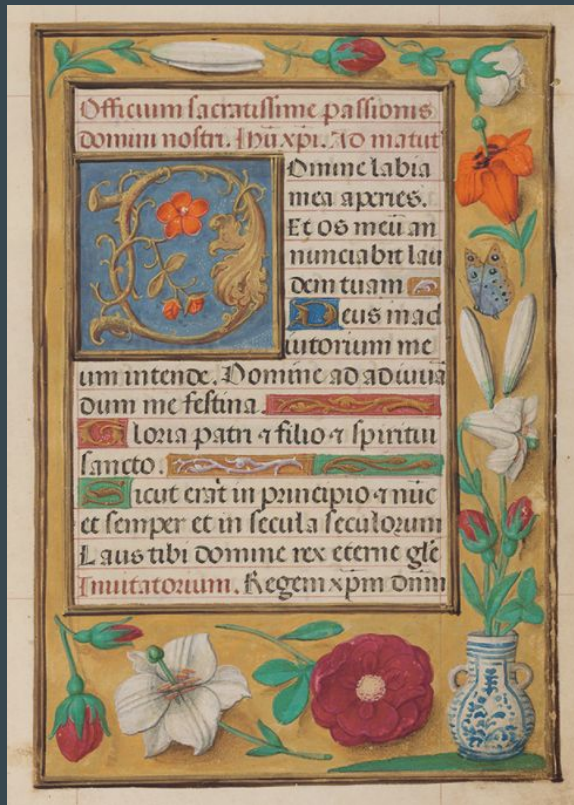 Officium sacratissime passionis
domini nostri. Ihū xpi. Ad matut̄
Domine labia
mea aperies.
Et os meū an
nunciabit lau
dem tuam
Deus in ad
iutorium me
um intende. Domine ad adiuuā
dum me festina.
Gloria patri ⁊ filio ⁊ spiritui
sancto.
Sicut erat in principio ⁊ nūc
et semper et in secula seculorum
Laus tibi domine rex eterne glē
Inuitatorium. Regem xp̄m dn̄m